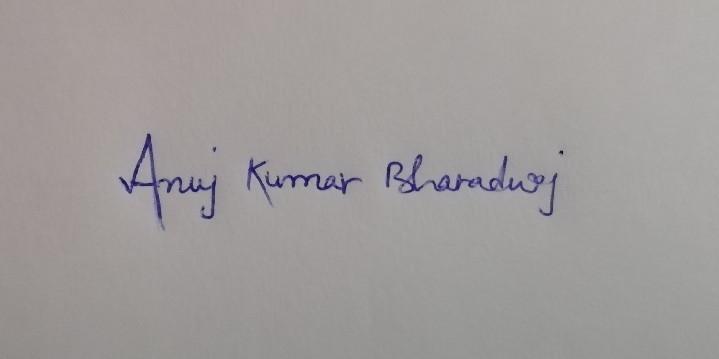 Anuj Kumar Bharadwaj